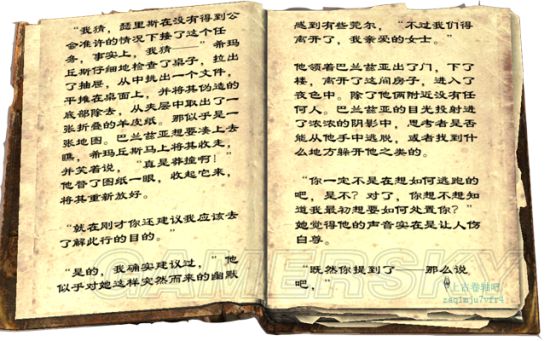 “我猜，瑟里斯在没有得到公
会准许的情况下接了这个任
务，事实上，我猜——”希玛
丘斯仔细地检查了桌子，拉出
了抽屉，从中挑出一个文件，
平摊在桌面上，并将其伪造的
底部除去，从夹层中取出了一
张折叠的羊皮纸。那似乎是一
张地图。巴兰兹亚想要凑上去
瞧，希玛丘斯马上将其收走，
并笑着说，“真是莽撞啊！”
他瞥了图纸一眼，收起它来，
将其重新放好。
“就在刚才你还建议我应该去
了解此行的目的。”
“是的，我确实建议过，”他
似乎对她这样突然而来的幽默
感到有些莞尔，“不过我们得
离开了，我亲爱的女士。”
他领着巴兰兹亚出了门，下了
楼，离开了这间房子，进入了
夜色中。除了他俩附近没有任
何人。巴兰兹亚的目光投射进
了浓浓的阴影中，思考者是否
能从他手中逃脱，或者找到什
么地方躲开他之类的。
“你一定不是在想如何逃跑的
吧，是不？对了，你想不想知
道我最初想要如何处置你？”
她觉得他的声音实在是让人伤
自尊。
“既然你提到了——那么说
吧，”
GAMERSKY
上古卷轴吧
zaqimju7vfr4